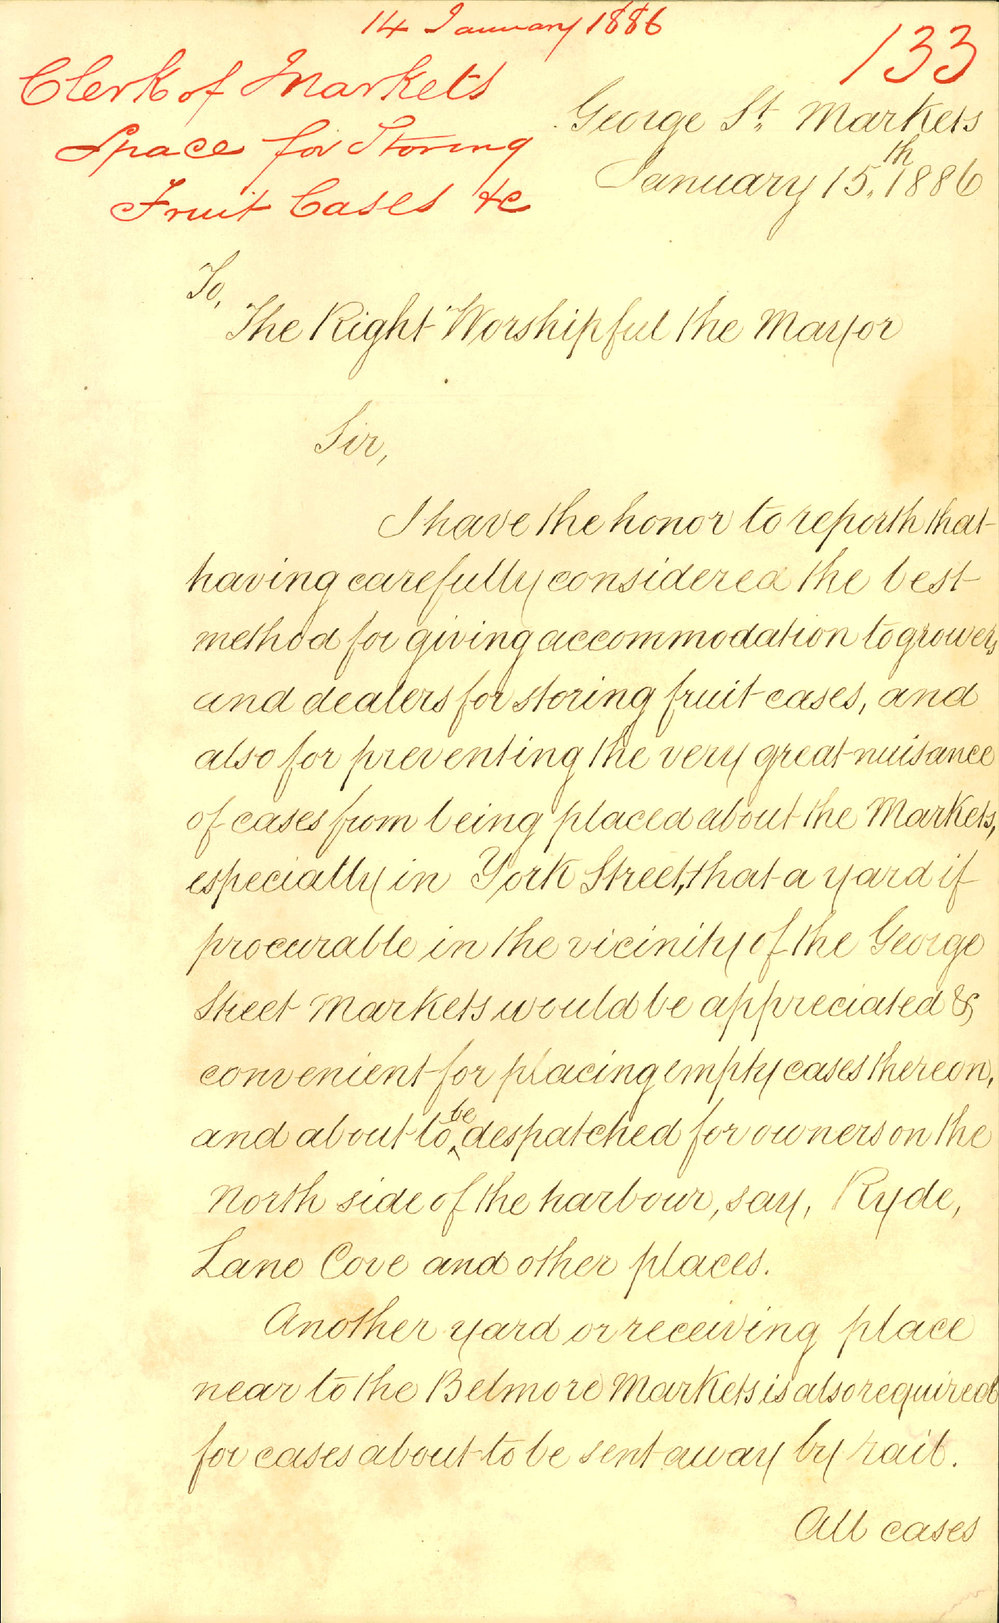 14 January 1886
133
Clerk of Markets
Space for Storing
Fruit Cases &c
George St. Markets
January 15th. 1886
To,
The Right Worshipful the Mayor
Sir,
I have the honor to reporth that
having carefully considered the best
method for giving accommodation to growers
and dealers for storing fruit cases, and
also for preventing the very great nuisance
of cases from being placed about the Markets,
especially in York Street, that a yard if
procurable in the vicinity of the George
Street Markets would be appreciated &
convenient for placing empty cases thereon,
and about to be despatched for owners on the
North side of the harbour, say, Ryde,
Lane Cove and other places.
Another yard or receiving place
near to the Belmore Markets is also required
for cases about to be sent away by rail.
All cases